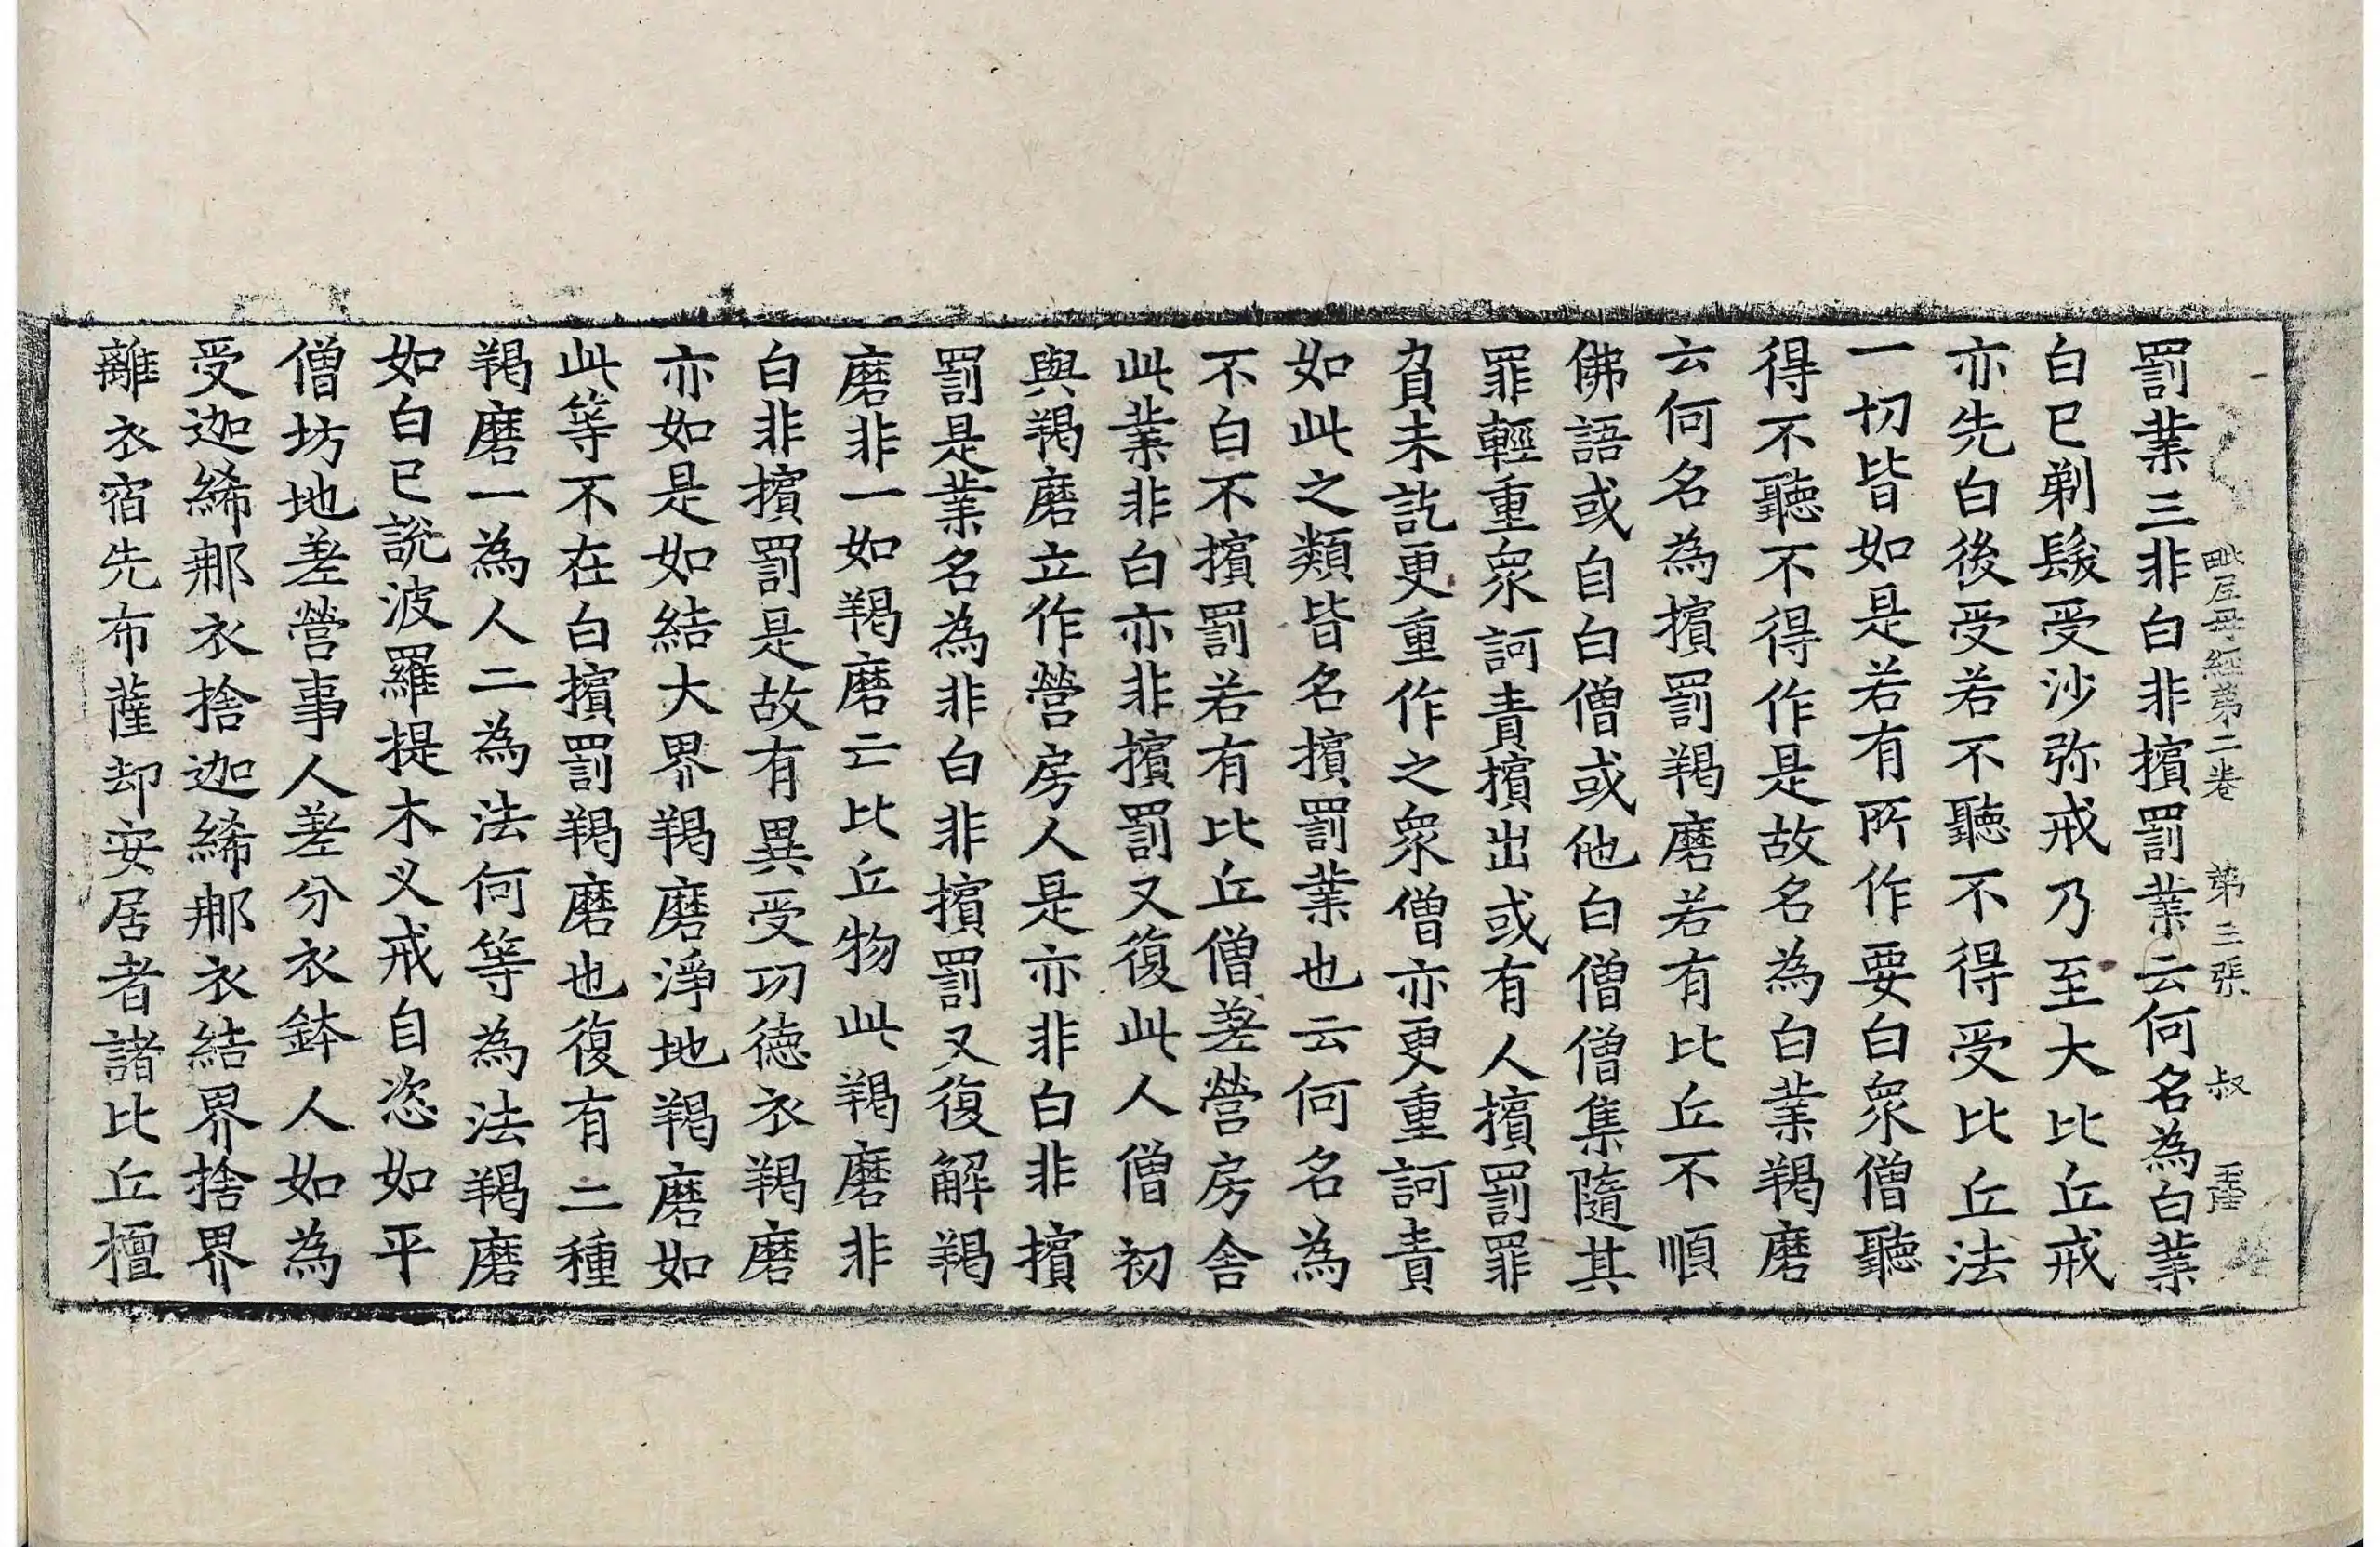 毗尼母經第二卷 第三張 叔
罰業三非白非擯罰業云何名為白業
白已剃髮受沙弥戒乃至大比丘戒
亦先白後受若不聽不得受比丘法
一切皆如是若有所作要白衆僧聽
得不聽不得作是故名為白業羯磨
云何名為擯罰羯磨若有比丘不順
佛語或自白僧或他白僧僧集隨其
罪輕重衆訶責擯出或有人擯罰罪
負未訖更重作之衆僧亦更重訶責
如此之類皆名擯罰業也云何名為
不白不擯罰若有比丘僧差營房舍
此業非白亦非擯罰又復此人僧初
與羯磨立作營房人是亦非白非擯
罰是業名為非白非擯罰又復解羯
磨非一如羯磨亡比丘物此羯磨非
白非擯罰是故有異受功德衣羯磨
亦如是如結大界羯磨淨地羯磨如
此等不在白擯罰羯磨也復有二種
羯磨一為人二為法何等為法羯磨
如白已說波羅提木叉戒自恣如平
僧坊地差營事人差分衣鉢人如為
受迦絺那衣捨迦絺那衣結界捨界
離衣宿先布薩却安居者諸比丘檀